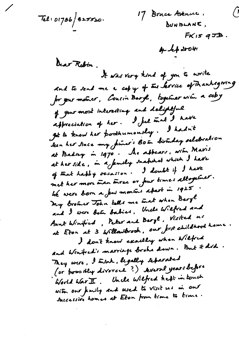 Tel: 01786/825520.
17 Bruce Avenue,
DUNBLANE,
FK15 9JB.
4 Sep 2004
Dear Robin,
It was very kind of you to write
and to send me a copy of the Service of Thanksgiving
for your mother, Cousin Beryl, together with a copy
of your most interesting and delightful
appreciation of her. I feel that I have
got to know her posthumously. I hadn't
seen her since my father's 80th birthday celebration
at in 1970. She appears, with Mavis
at her side, in a family snapshot which I have
of that happy occasion. I doubt if I have
met her more than three or four times altogether.
We were born a few months apart in 1925.
My brother John tells me that when Beryl
and I were both babies, Uncle Wilfred and
Aunt Winifred, Peter and Beryl, visited us
at Eton at 3 Willowbrook, our first childhood home.
I don't know exactly when Wilfred
and Winifred's marriage broke down. But it did.
They were, I think, legally separated
(or possibly divorced?) several years before
World War II. Uncle Wilfred kept in touch
with our family and used to visit us in our
successive homes at Eton from time to time.